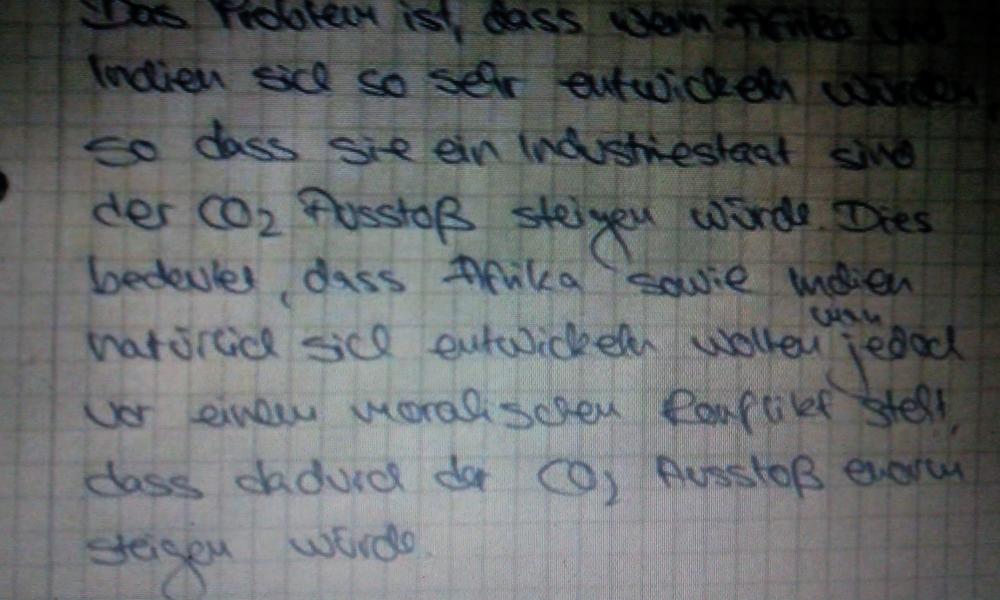 Das Problem ist, dass wenn Afrika und
Indien sich so sehr entwickeln würden,
so dass sie ein Industriestaat sind
der CO2 Ausstoß steigen würde. Dies
bedeutet, dass Afrika sowie Indien
natürlich sich entwickeln wollen jedoch
man
vor einem moralischen Konflikt steht,
dass dadurch der CO2 Ausstoß enorm
steigen würde.